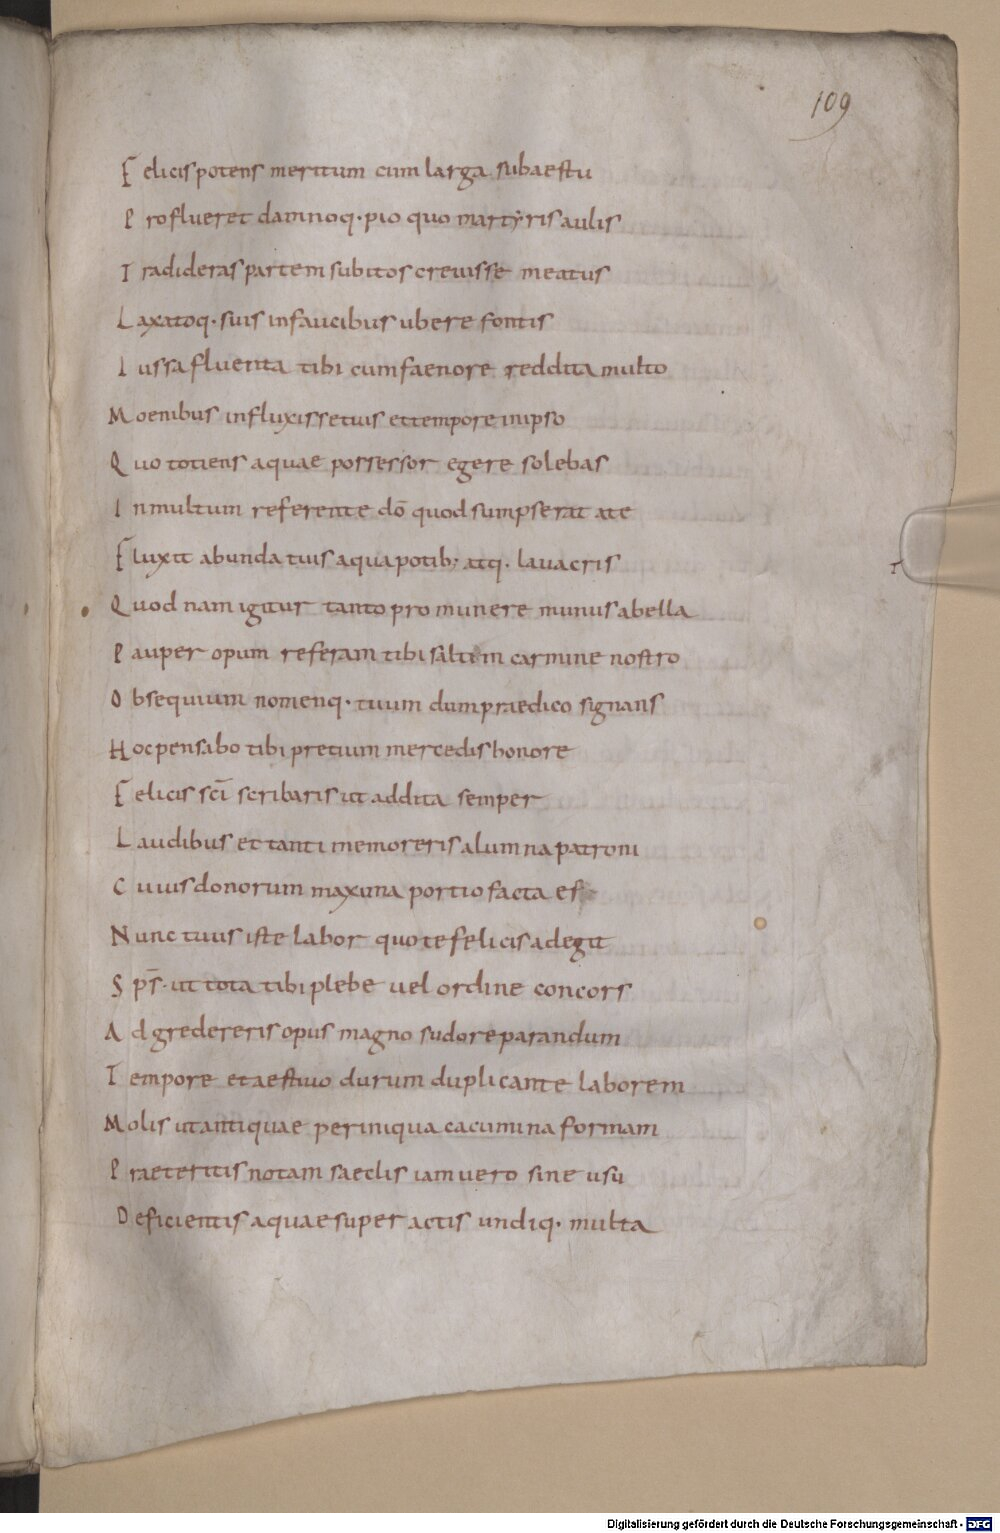 109
Felicis potens meritum cum larga sub aestu
Proflueret damnoq· pio quo martyris aulis
Tradideras partem subitos crevisse meatus
Laxatoq· suis in faucibus ubere fontis
Iussa fluenta tibi cum faenore reddita multo
Moenibus influxisse tuis et tempore in ipso
Quo totiens aquae possessor egere solebas
In multum referente dō quod sumpserat a te
Fluxit abunda tuis aqua potib; atq· lavacris
Quod nam igitur tanto pro munere munus abella
Pauper opum referam tibi saltem carmine nostro
Obsequium nomenq· tuum dum praedico signans
Hoc pensabo tibi pretium mercedis honore
Felicis sc̄i scribaris ut addita semper
Laudibus et tanti memoreris alumna patroni
Cuius donorum maxima portio facta es
Nunc tuus iste labor quo te felicis adegit
Sps̄· ut tota tibi plebe vel ordine concors
Adgredereris opus magno sudore parandum
Tempore et aestivo durum duplicante laborem
Molis ut antiquae per iniqua cacumina formam
Praeteritis notam saeclis iam vero sine usu
Deficientis aquae super actis undiq· multa
Digitalisierung gefördert durch die Deutsche Forschungsgemeinschaft - DFG